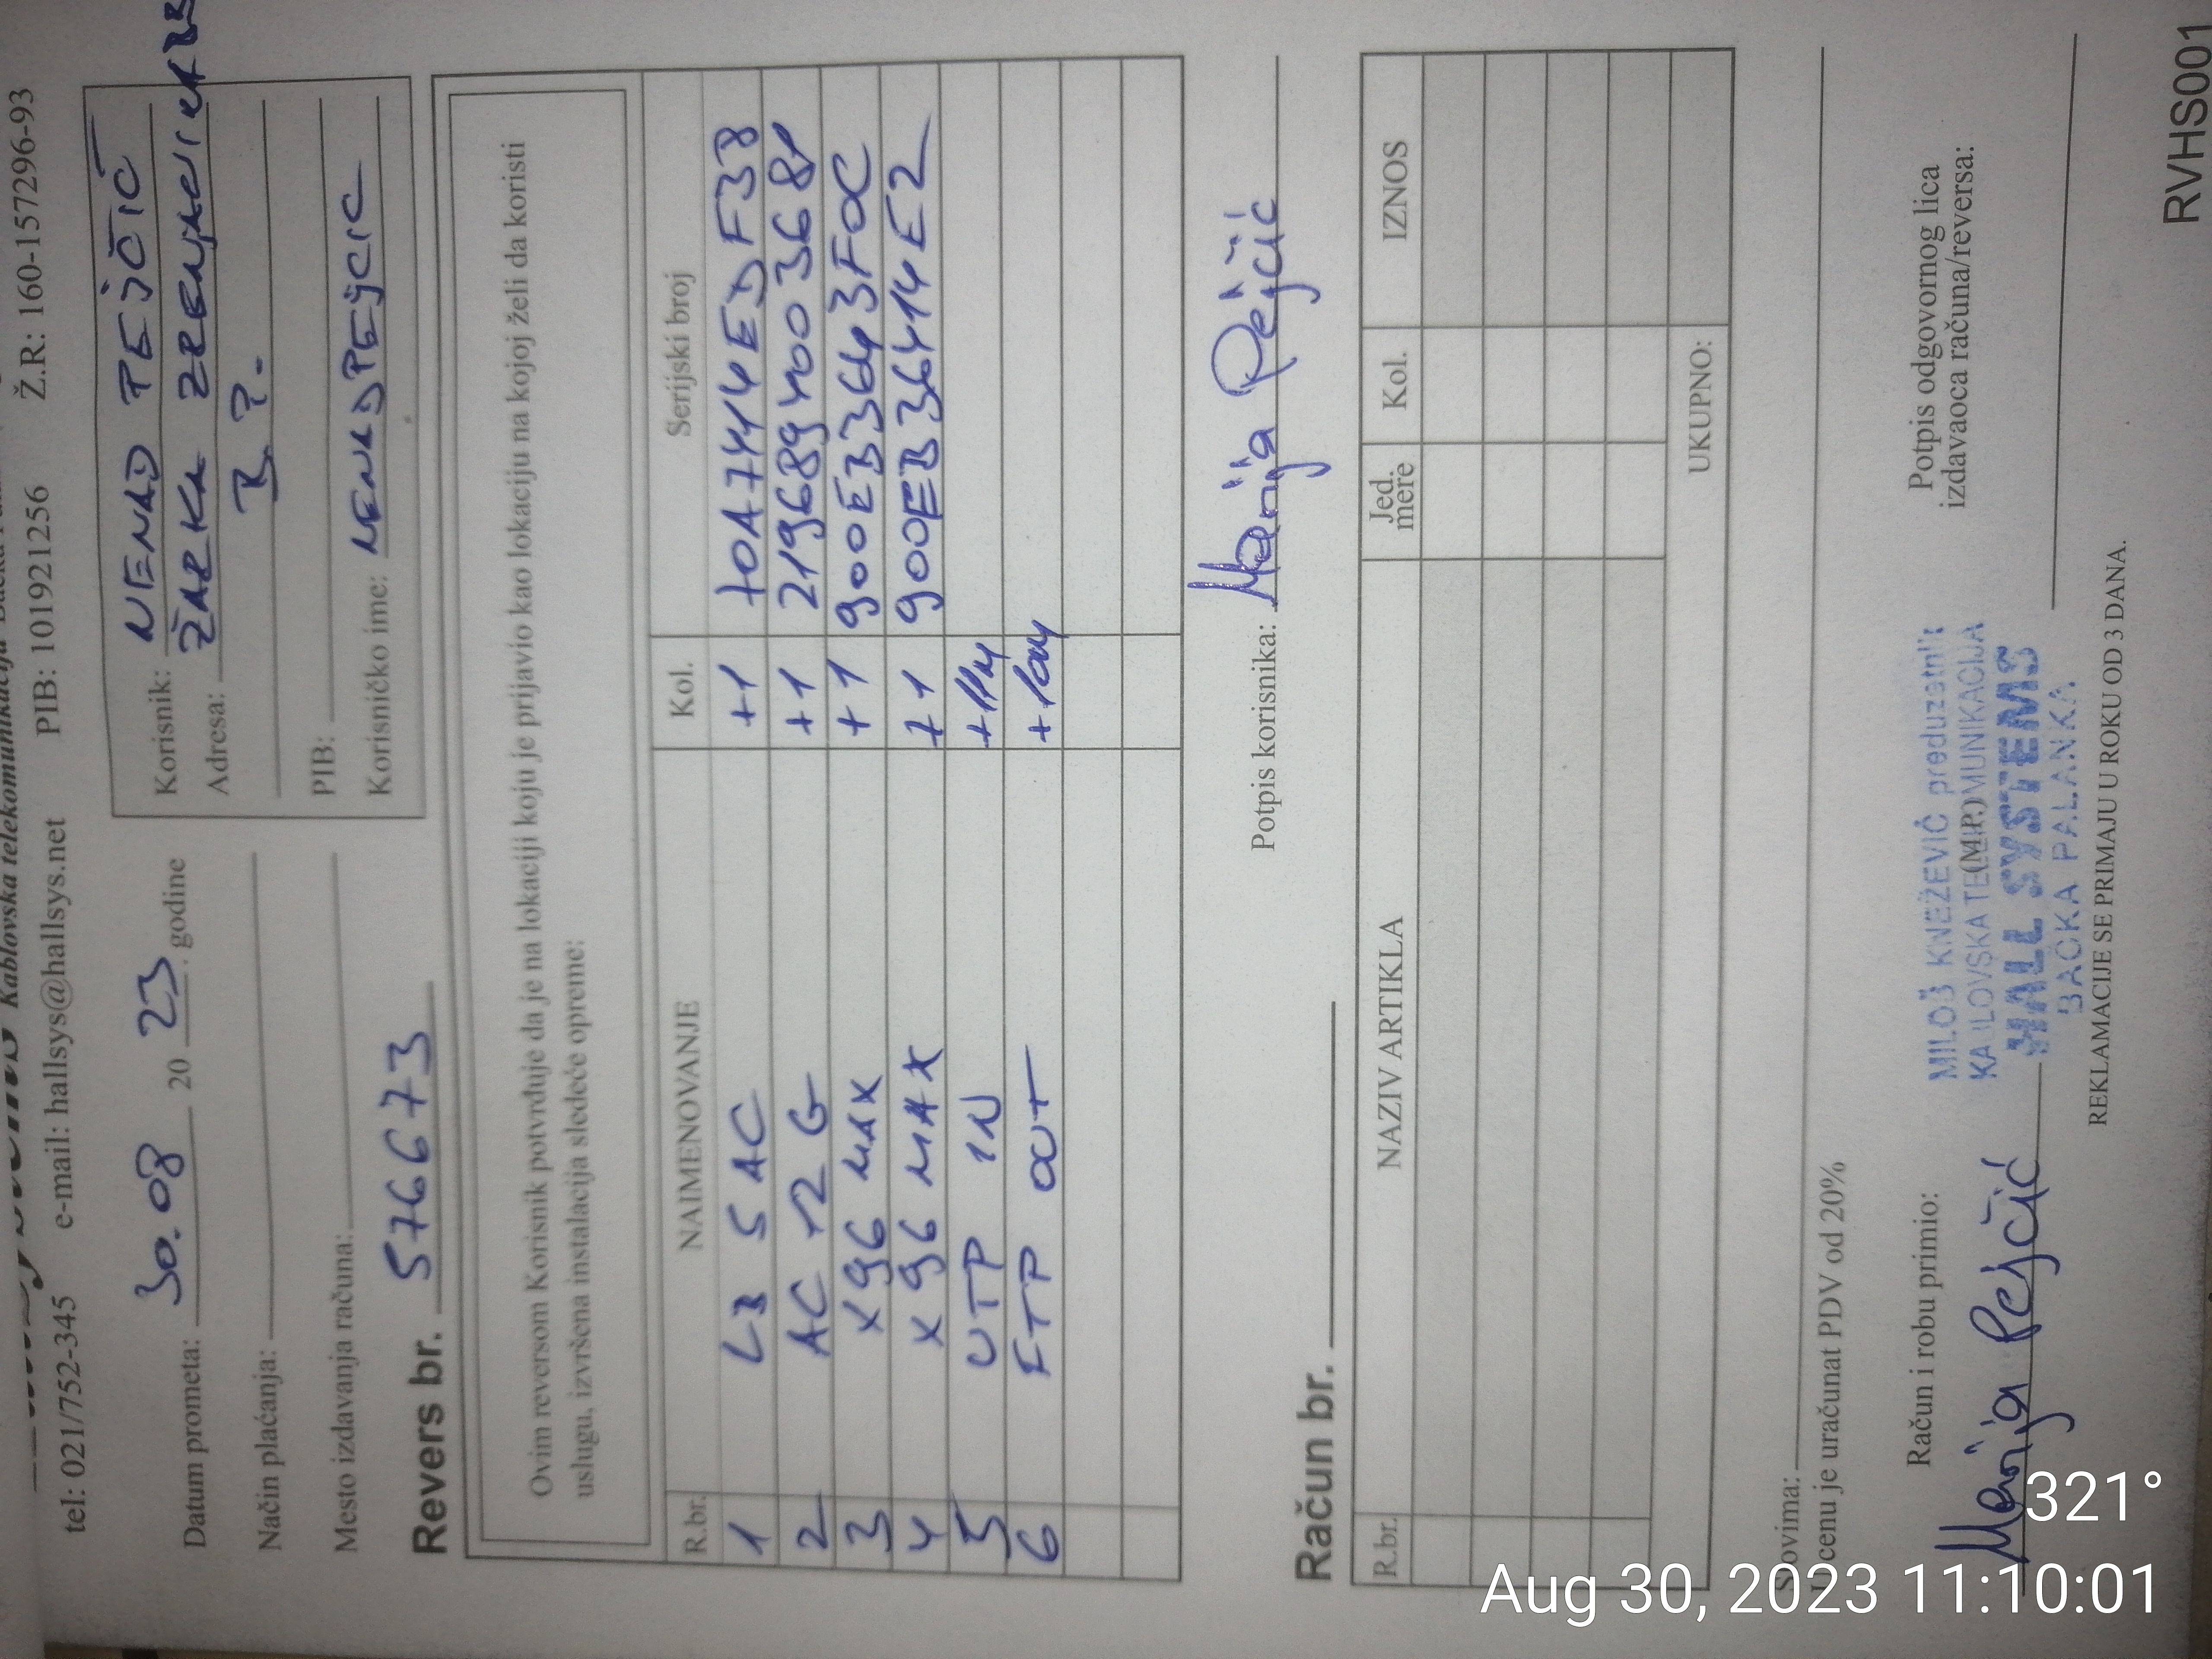 Kablovska telekomunikacija
tel: 021/752-345 e-mail: hallsys@hallsys.net PIB: 101921256 Ž.R: 160-157296-93
Datum prometa: 30.08 2023. godine
Način plaćanja:
Mesto izdavanja računa:
Korisnik: NENAD PEJČIĆ
Adresa: ŽARKA ZRENJANINA
B.P.
PIB:
Korisničko ime: NENADPEJCIC
Revers br. 576673
Ovim reversom Korisnik potvrđuje da je na lokaciji koju je prijavio kao lokaciju na kojoj želi da koristi
uslugu, izvršena instalacija sledeće opreme:
R.br. NAIMENOVANJE Kol. Serijski broj
1 LB 5 AC +1 70A7444EDF38
2 AC 12 G +1 2196894003681
3 X96 MAX +1 900EB3643F0C
4 X96 MAX +1 900EB36414E2
5 UTP IN +11M
6 FTP OUT +10M
Potpis korisnika: Marija Pejčić
Račun br.
R.br. NAZIV ARTIKLA Jed. mere Kol. IZNOS
UKUPNO:
Slovima:
U cenu je uračunat PDV od 20%
Račun i robu primio:
Marija Pejčić
(M.P.)
MILOŠ KNEŽEVIĆ preduzetnik
KABLOVSKA TELEKOMUNIKACIJA
HALL SYSTEMS
BAČKA PALANKA
Potpis odgovornog lica
izdavaoca računa/reversa:
REKLAMACIJE SE PRIMAJU U ROKU OD 3 DANA.
RVHS001
321°
Aug 30, 2023 11:10:01